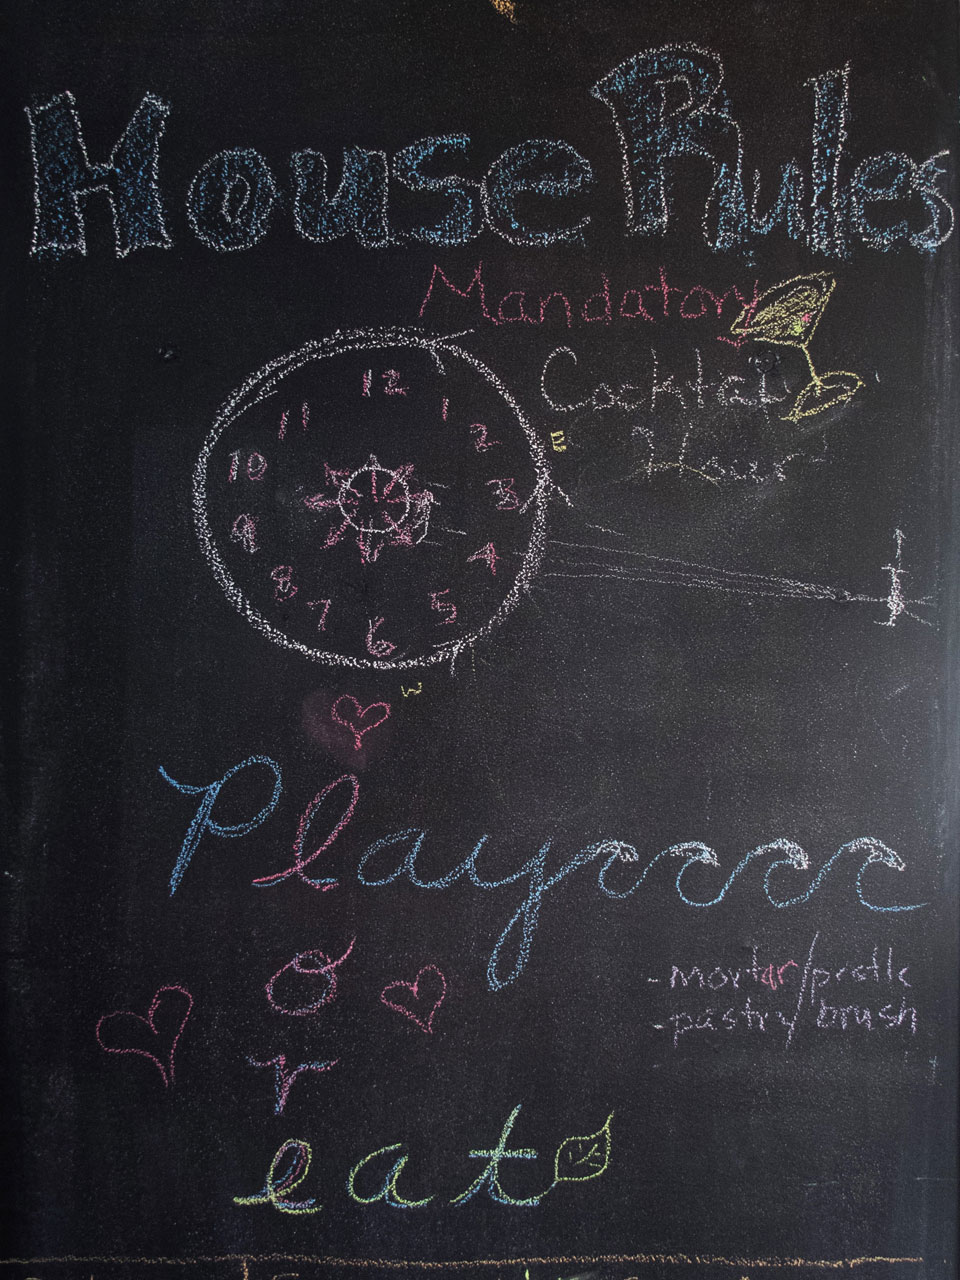 House Rules
Mandatory
Cocktail
Hour
12
11
1
10
2
E
9
3
8
4
7
5
6
W
Play
or
eat
-mortar/pestle
-pastry/brush